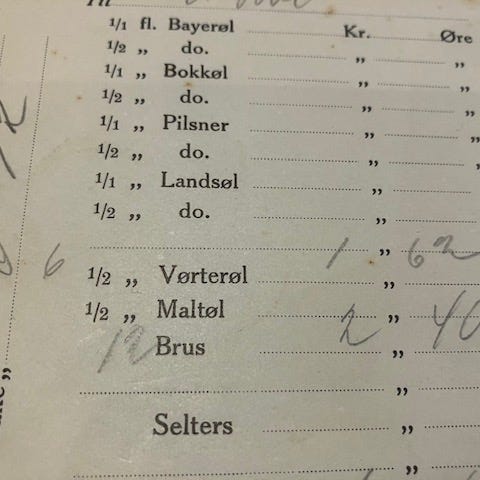 Til
1/1 fl. Bayerøl Kr. Øre
1/2 „ do. „ „
1/1 „ Bokkøl „ „
1/2 „ do. „ „
1/1 „ Pilsner „ „
1/2 „ do. „ „
1/1 „ Landsøl „
1/2 „ do. „
6 1/2 „ Vørterøl 1 „ 62
1/2 „ Maltøl „
12 Brus 2 „ 40
„
Selters „
„